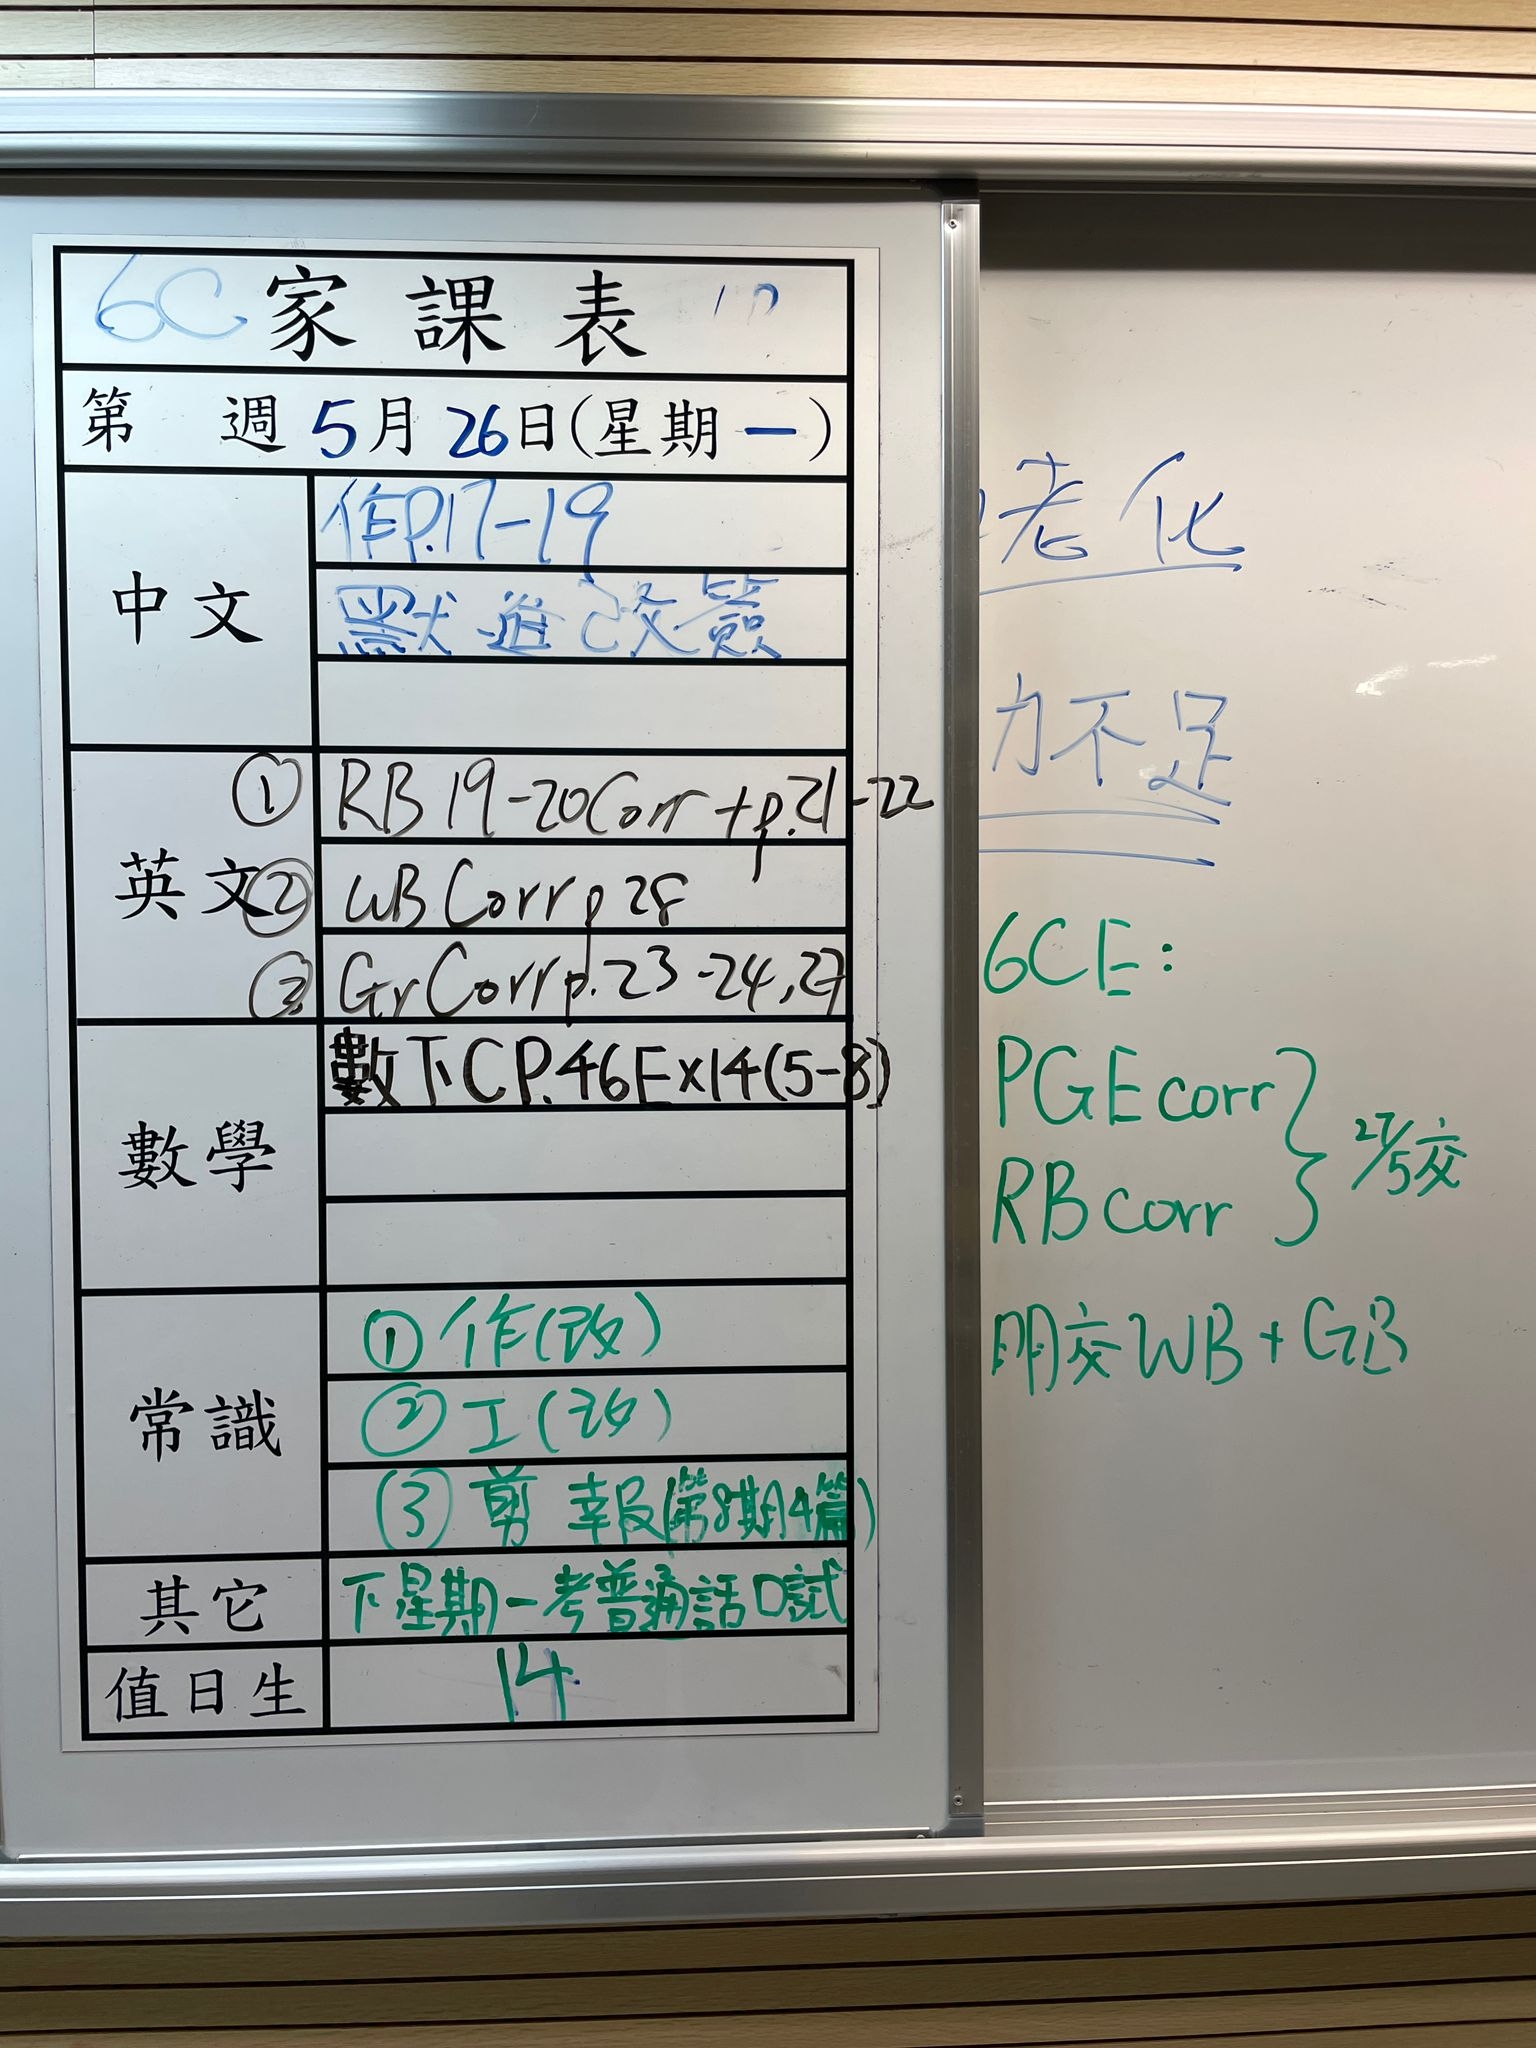 6C 家課表
第 週 5月26日(星期一)
中文
作P.17-19
默進改簽
英文
① RB 19-20 Corr + p.21-22
② WB Corr p 28
③ Gr Corr p. 23-24, 27
數學
數下C P.46 Ex14(5-8)
常識
① 作(改)
② 工(改)
③ 剪報(第8期4篇)
其它
下星期一考普通話口試
值日生
14
老化
力不足
6CE:
PGE corr
RB corr
27/5交
明交 WB + GB